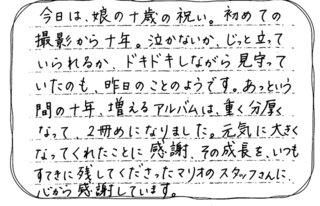 今日は、娘の十歳の祝い。初めての
撮影から十年。泣かないか、じっと立って
いられるか、ドキドキしながら見守って
いたのも、昨日のことのようです。あっという
間の十年、増えるアルバムは、重く分厚く
なって、2冊めになりました。元気に大きく
なってくれたことに感謝、その成長を、いつも
すてきに残してくださったマリオのスタッフさんに、
心から感謝しています。